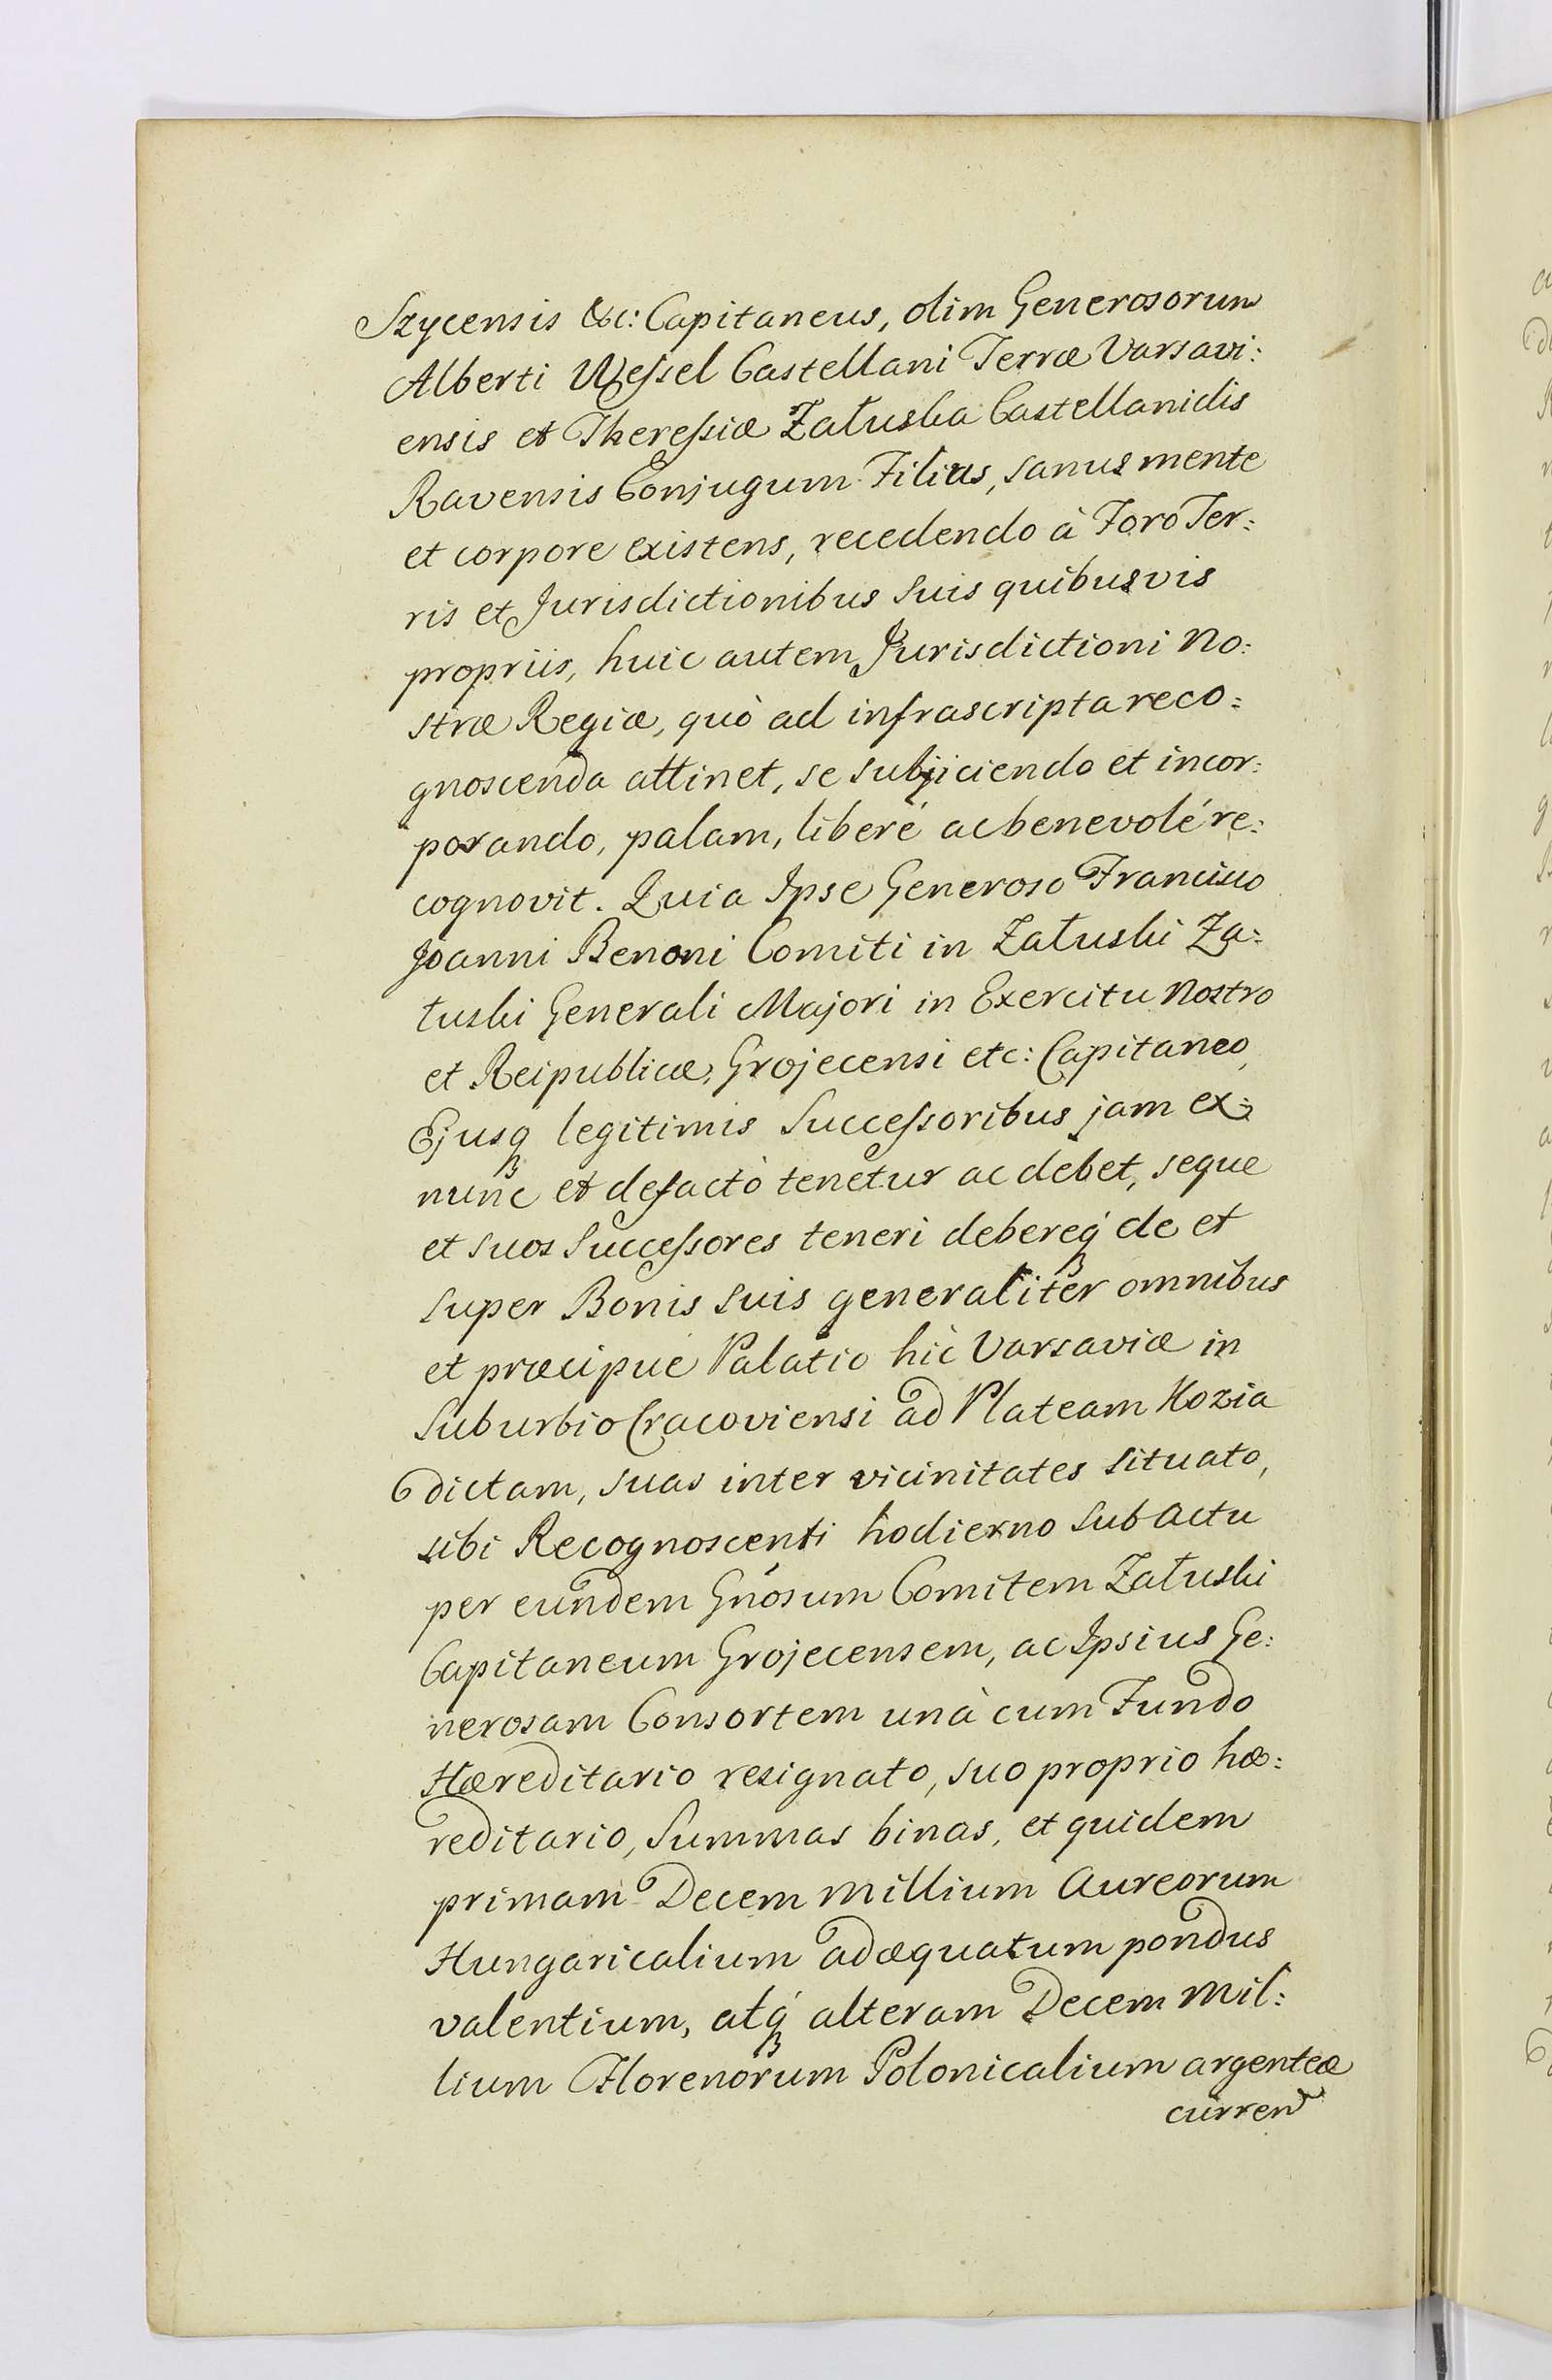 Szycensis &c: Capitaneus, olim Generosorum
Alberti Wessel Castellani Terræ Varsavi:
ensis et Theressiæ Załuska Castellanidis
Ravensis Conjugum Filius, sanus mente
et corpore existens, recedendo à Foro Ter:
ris et Jurisdictionibus suis quibusvis
propriis, huic autem Jurisdictioni No:
stræ Regiæ, quò ad infrascripta reco:
gnoscenda attinet, se subjiciendo et incor:
porando, palam, liberé ac benevolé re:
cognovit. Quia Ipse Generoso Francisco
Joanni Benoni Comiti in Załuski Za:
łuski Generali Majori in Exercitu Nostro
et Reipublicæ, Grojecensi etc: Capitaneo,
Ejusq legitimis Successoribus jam ex:
nunc et defacto tenetur ac debet, seque
et suos Successores teneri debereq́ de et
super Bonis suis generaliter omnibus
et præcipué Palatio hìc Varsaviæ in
Suburbio Cracoviensi ad Plateam Kozia
dictam, suas inter vicinitates situato,
sibi Recognoscenti hodierno sub actu
per eundem Gnosum Comitem Załuski
Capitaneum Grojecensem, ac Ipsius Ge:
nerosam Consortem unà cum Fundo
Hæreditario resignato, suo proprio hæ:
reditario, Summas binas, et quidem
primam Decem Millium Aureorum
Hungaricalium adæquatum pondus
valentium, atq́ alteram Decem Mil:
lium Florenorum Polonicalium argenteæ
curren